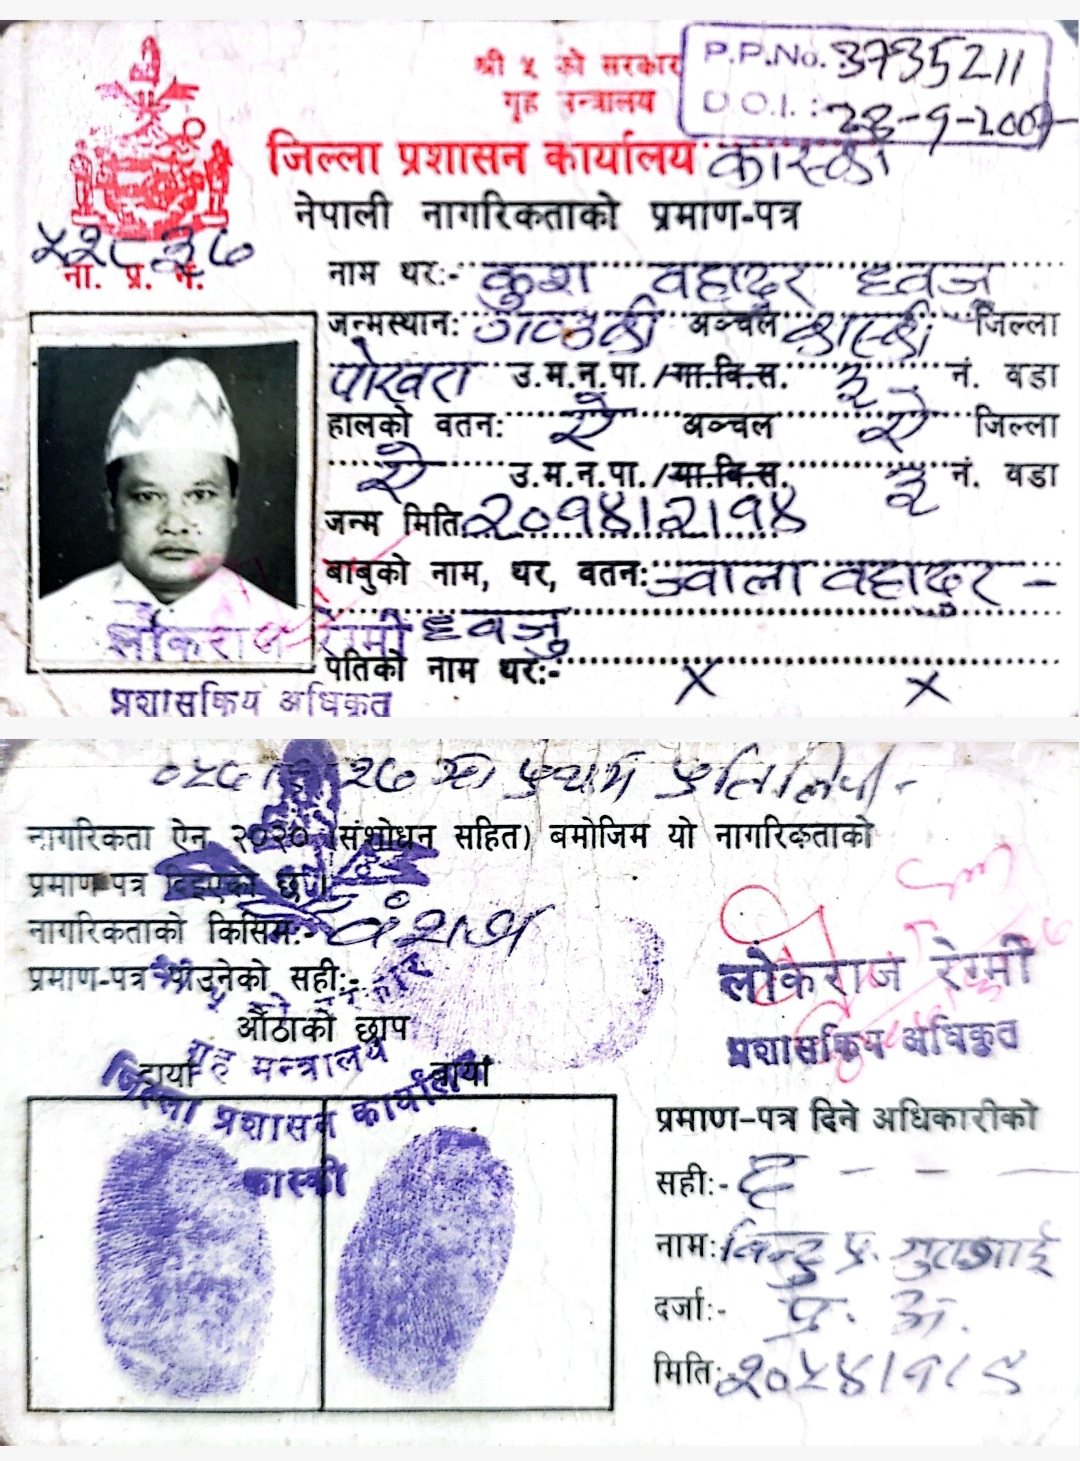 श्री ५ को सरकार
गृह मन्त्रालय
P.P.No. 3735211
D.O.I.: 28-9-2007
जिल्ला प्रशासन कार्यालय कास्की
नेपाली नागरिकताको प्रमाण-पत्र
ना. प्र. नं.
नाम थर:- कुश वहादुर ध्वजु
जन्मस्थान: गण्डकी अञ्चल कास्की जिल्ला
पोखरा उ.म.न.पा./गा.वि.स. ३ नं. वडा
हालको वतन: ऐ अञ्चल ऐ जिल्ला
ऐ उ.म.न.पा./गा.वि.स. ३ नं. वडा
जन्म मिति २०१४।२।१४
बाबुको नाम, थर, वतन: ज्वाला वहादुर -
ध्वजु
पतिको नाम थर:- x x
लोकराज रेग्मी
प्रशासकिय अधिकृत
को प्रथम प्रतिलिपी -
नागरिकता ऐन २०२० (संशोधन सहित) बमोजिम यो नागरिकताको
प्रमाण-पत्र दिइएको छ।
नागरिकताको किसिम:- वंशज
प्रमाण-पत्र पाउनेको सही:-
औंठाको छाप
दायाँ बायाँ
गृह मन्त्रालय
जिल्ला प्रशासन कार्यालय
कास्की
लोकराज रेग्मी
प्रशासकिय अधिकृत
प्रमाण-पत्र दिने अधिकारीको
सही:-
नाम: विन्दु प्र.
दर्जा:- प्र. अ.
मिति: २०५४।१।९